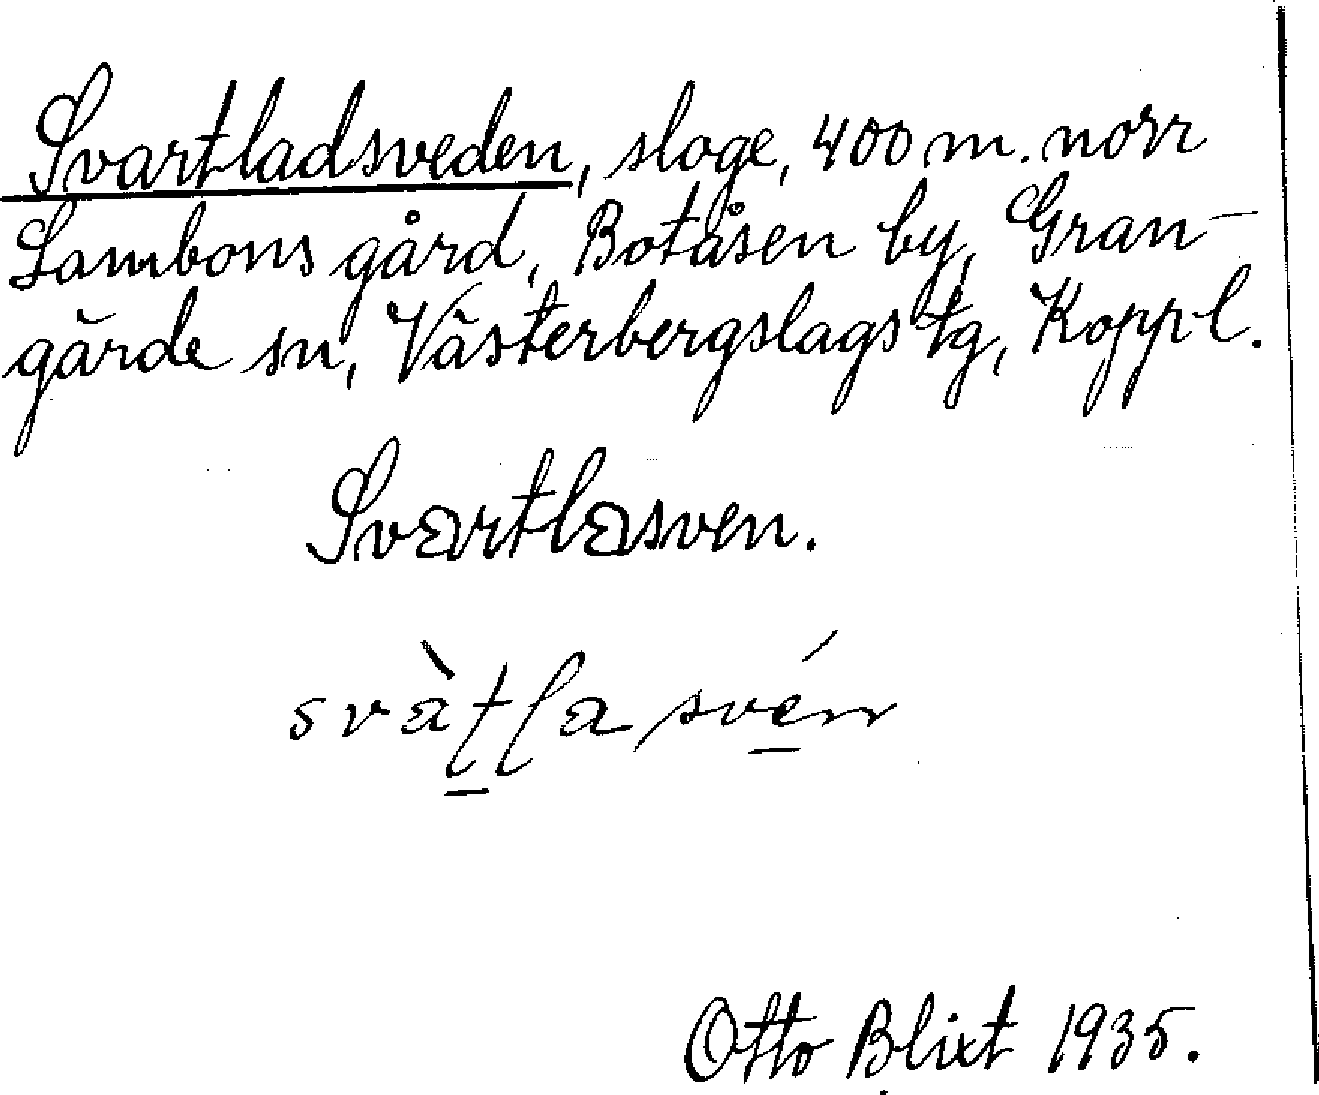 Svartladsveden, sloge, 400 m. norr
Lambons gård, Botåsen by, Gran-
gärde sn, Västerbergslags tg, Koppl.
Svartlasven.
svàʈɭa svén
Otto Blixt 1935.